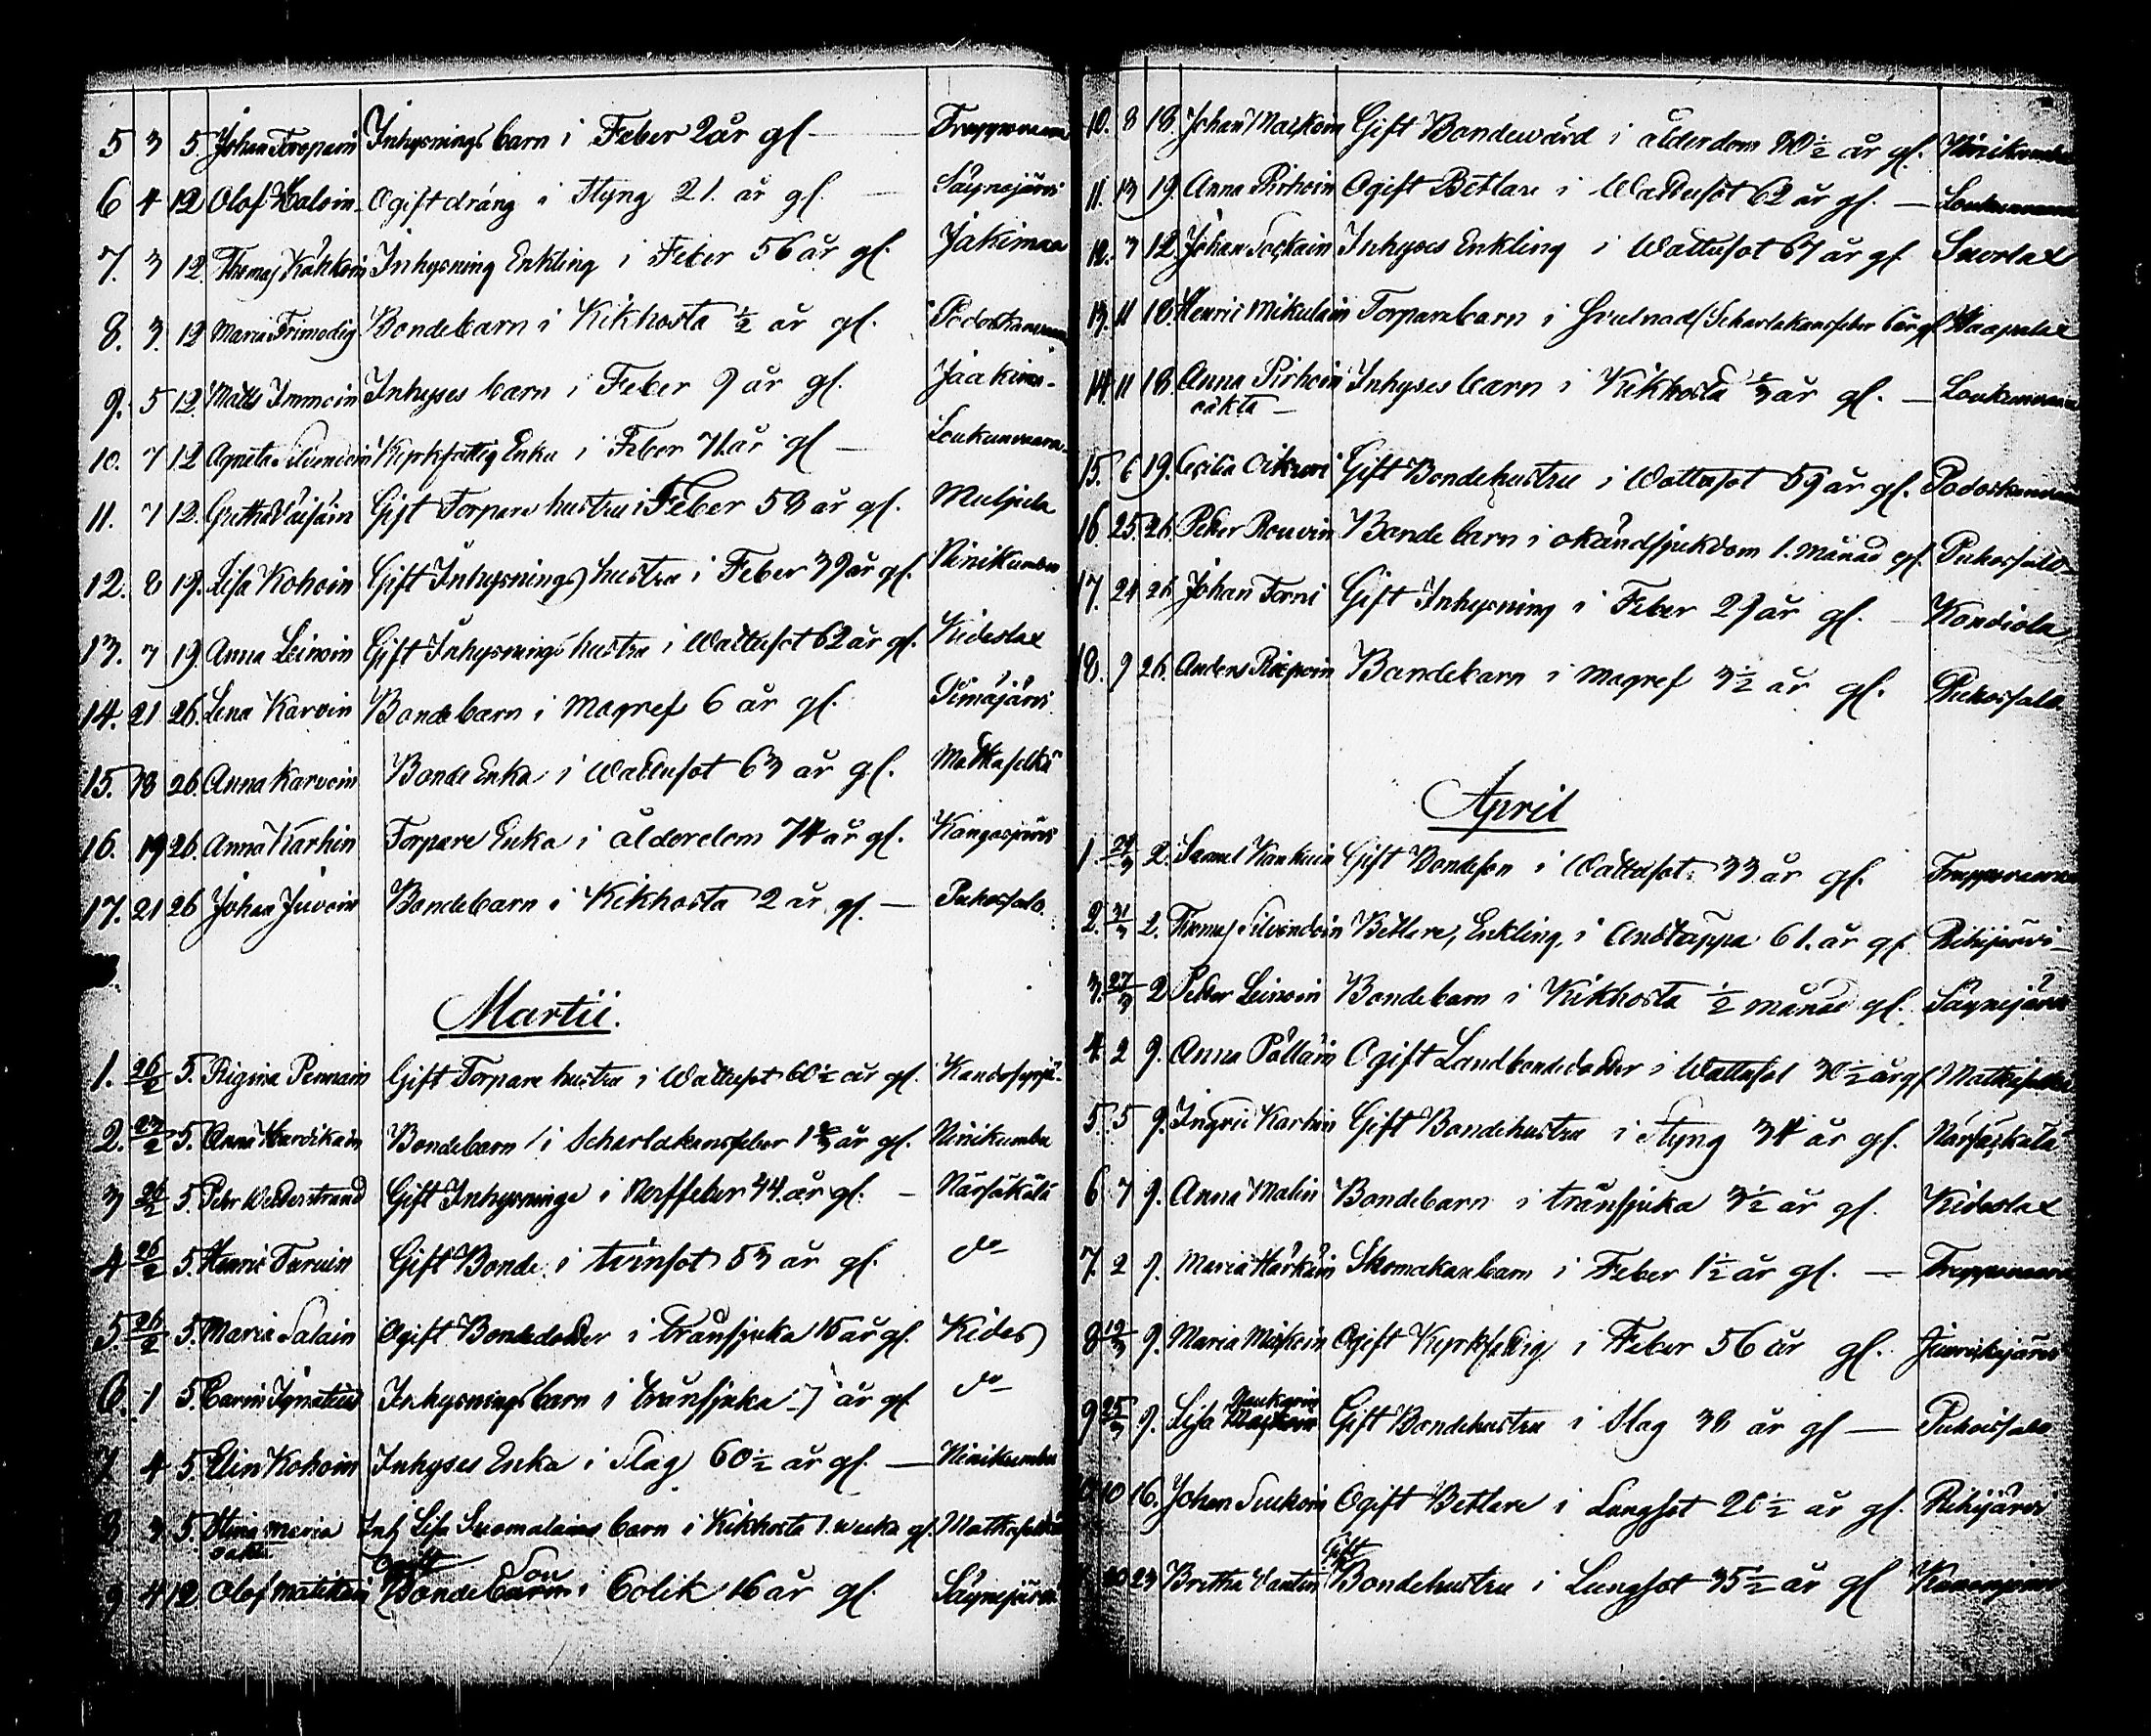 5 3 5. Johan Toropain Inhysnings barn i Feber 2 år gl Truppovaara
6 4 12 Olof Haloin Ogift dräng i Styng 21. år gl. Säynejärvi
7. 3 12. Thomas Käkköin Inhysning Enkling i Feber 56 år gl. Jakimaa
8. 3. 12 Maria Frimodig Bondebarn i Kikhosta ½ år gl. Podoskanvaara
9. 5 12. Matts Immoin Inhyses barn i Feber 9 år gl. Jaakima
10. 7 12 Agneta Silvendoin Kyrkfattig Enka i Feber 71. år gl Loukunvaara
11. 7 12. Gretha Väisäin Gift Torpare hustru i Feber 58 år gl. Muljula
12. 8 19. Lisa Kohoin Gift Inhysnings hustru i Feber 39 år gl. Niinikumbu
13. 7 19 Anna Leinoin Gift Inhysnings hustru i Wattusot 62 år gl. Kideslax
14. 21 26. Lena Karvin Bondebarn i Magref 6 år gl.
15. 18 26. Anna Karvoin Bonde Enka i Wattusot 63 år gl. Matkaselkä
16. 19 26. Anna Karhin Torpare Enka i ålderdom 74 år gl. Kangasjärvi
17. 21 26 Johan Juvoin Bondebarn i Kikhosta 2 år gl. — Puhossalo.
Martii.
1. 26/2 5. Regina Pennain Gift Torpare hustru i Wattusot 60 ½ år gl.
2. 23/2 5. Anna Hardikain Bondebarn i Scharlakansfeber 1 ¾ år gl. Niinikumbu
3 26/2 5. Petr Wederstrand Gift Inhysninge i Nerffeber 44. år gl. - Närsäkälä
4 26/2 5. Henric Turuin Gift Bonde i tvinsot 53 år gl. do
5. 26/2 5. Maria Salain Ogift Bondedotter i trånsjuka 15 år gl. Kides
6. 1 5. Carin Ignatius Inhysningsbarn i trånsjuka 7 år gl do
7 4 5. Elin Kohoin Inhyses Enka i Slag 60 ½ år gl. — Niinikumbu
8 3 5. Stina Maria Inh Lisa Suomalains barn i Kikhosta 1. wecka gl. Matkaselkä
oäkta
Ogift Son
9 4 12 Olof Matikain Bonde barn i Colik 16 år gl. Säynejärvi
10. 8 18. Johan Maskoin Gift Bondewärd i ålderdom 80 ½ år gl. Niinikumbu
11. 13 19. Anna Pirhoin Ogift Betlare i Wattusot 62 år gl. — Loukunvaara
12. 7 12. Johan Sockain Inhyses Enkling i Wattusot 67 år gl. Suorlax
13. 11 18. Henric Mikulain Torparebarn i Scharlakansfeber 6 år gl Haapalax
14. 11 18. Anna Pirhoin Inhyses barn i Kikhosta år gl. — Loukunvaara
oäkta —
15. 6 19. Cecilia Oikari Gift Bondehustru i Wattusot 59 år gl. Podoskanvaara
16. 25. 26. Petter Rouvin Bondebarn i okändsjukdom 1. månad gl. Puhossalo
17. 24 26. Johan Torni Gift Inhysning i Feber 29 år gl. Kondiola
18. 9 26. Anders Bondebarn i Magref 3 ½ år gl. Puhossalo
April
1. 29/3 2. Samel Kankuin Gift Bondeson i Wattusot 33 år gl. Truppovaara
2. 31/3 2. Thomas Silvendoin Betlare, Enkling, i Andtäppa 61. år gl. Riihijärvi
3. 27/3 2 Petter Leinoin Bondebarn i Kikhosta ½ månad gl. Säynejärvi
4. 2 9. Anna Pöllain Ogift Landbondedotter i Wattusot 30 ½ år gl Matkaselkä
5. 5 9. Ingrie Karhin Gift Bondehustru i Styng 34 år gl. Närsäkälä
6. 7 9. Anna Malin Bondebarn i trånsjuka 3 ½ år gl. Kideslax
7. 2 9. Maria Härkäin Skomakarebarn i Feber 1 ½ år gl. — Truppovaara
8 19/3 9. Maria Ogift Kyrkfattig i Feber 56 år gl.
Naukarin
9 25/3 9. Lisa Gift Bondehustru i Slag 38 år gl — Puhossalo
10 10 16. Johan Suckoin Ogift Betlare i Lungsot 20 ½ år gl. Riihijärvi
Gift
20 23 Bretha Vantin Bondehustru i Lungsot 35 ½ år gl